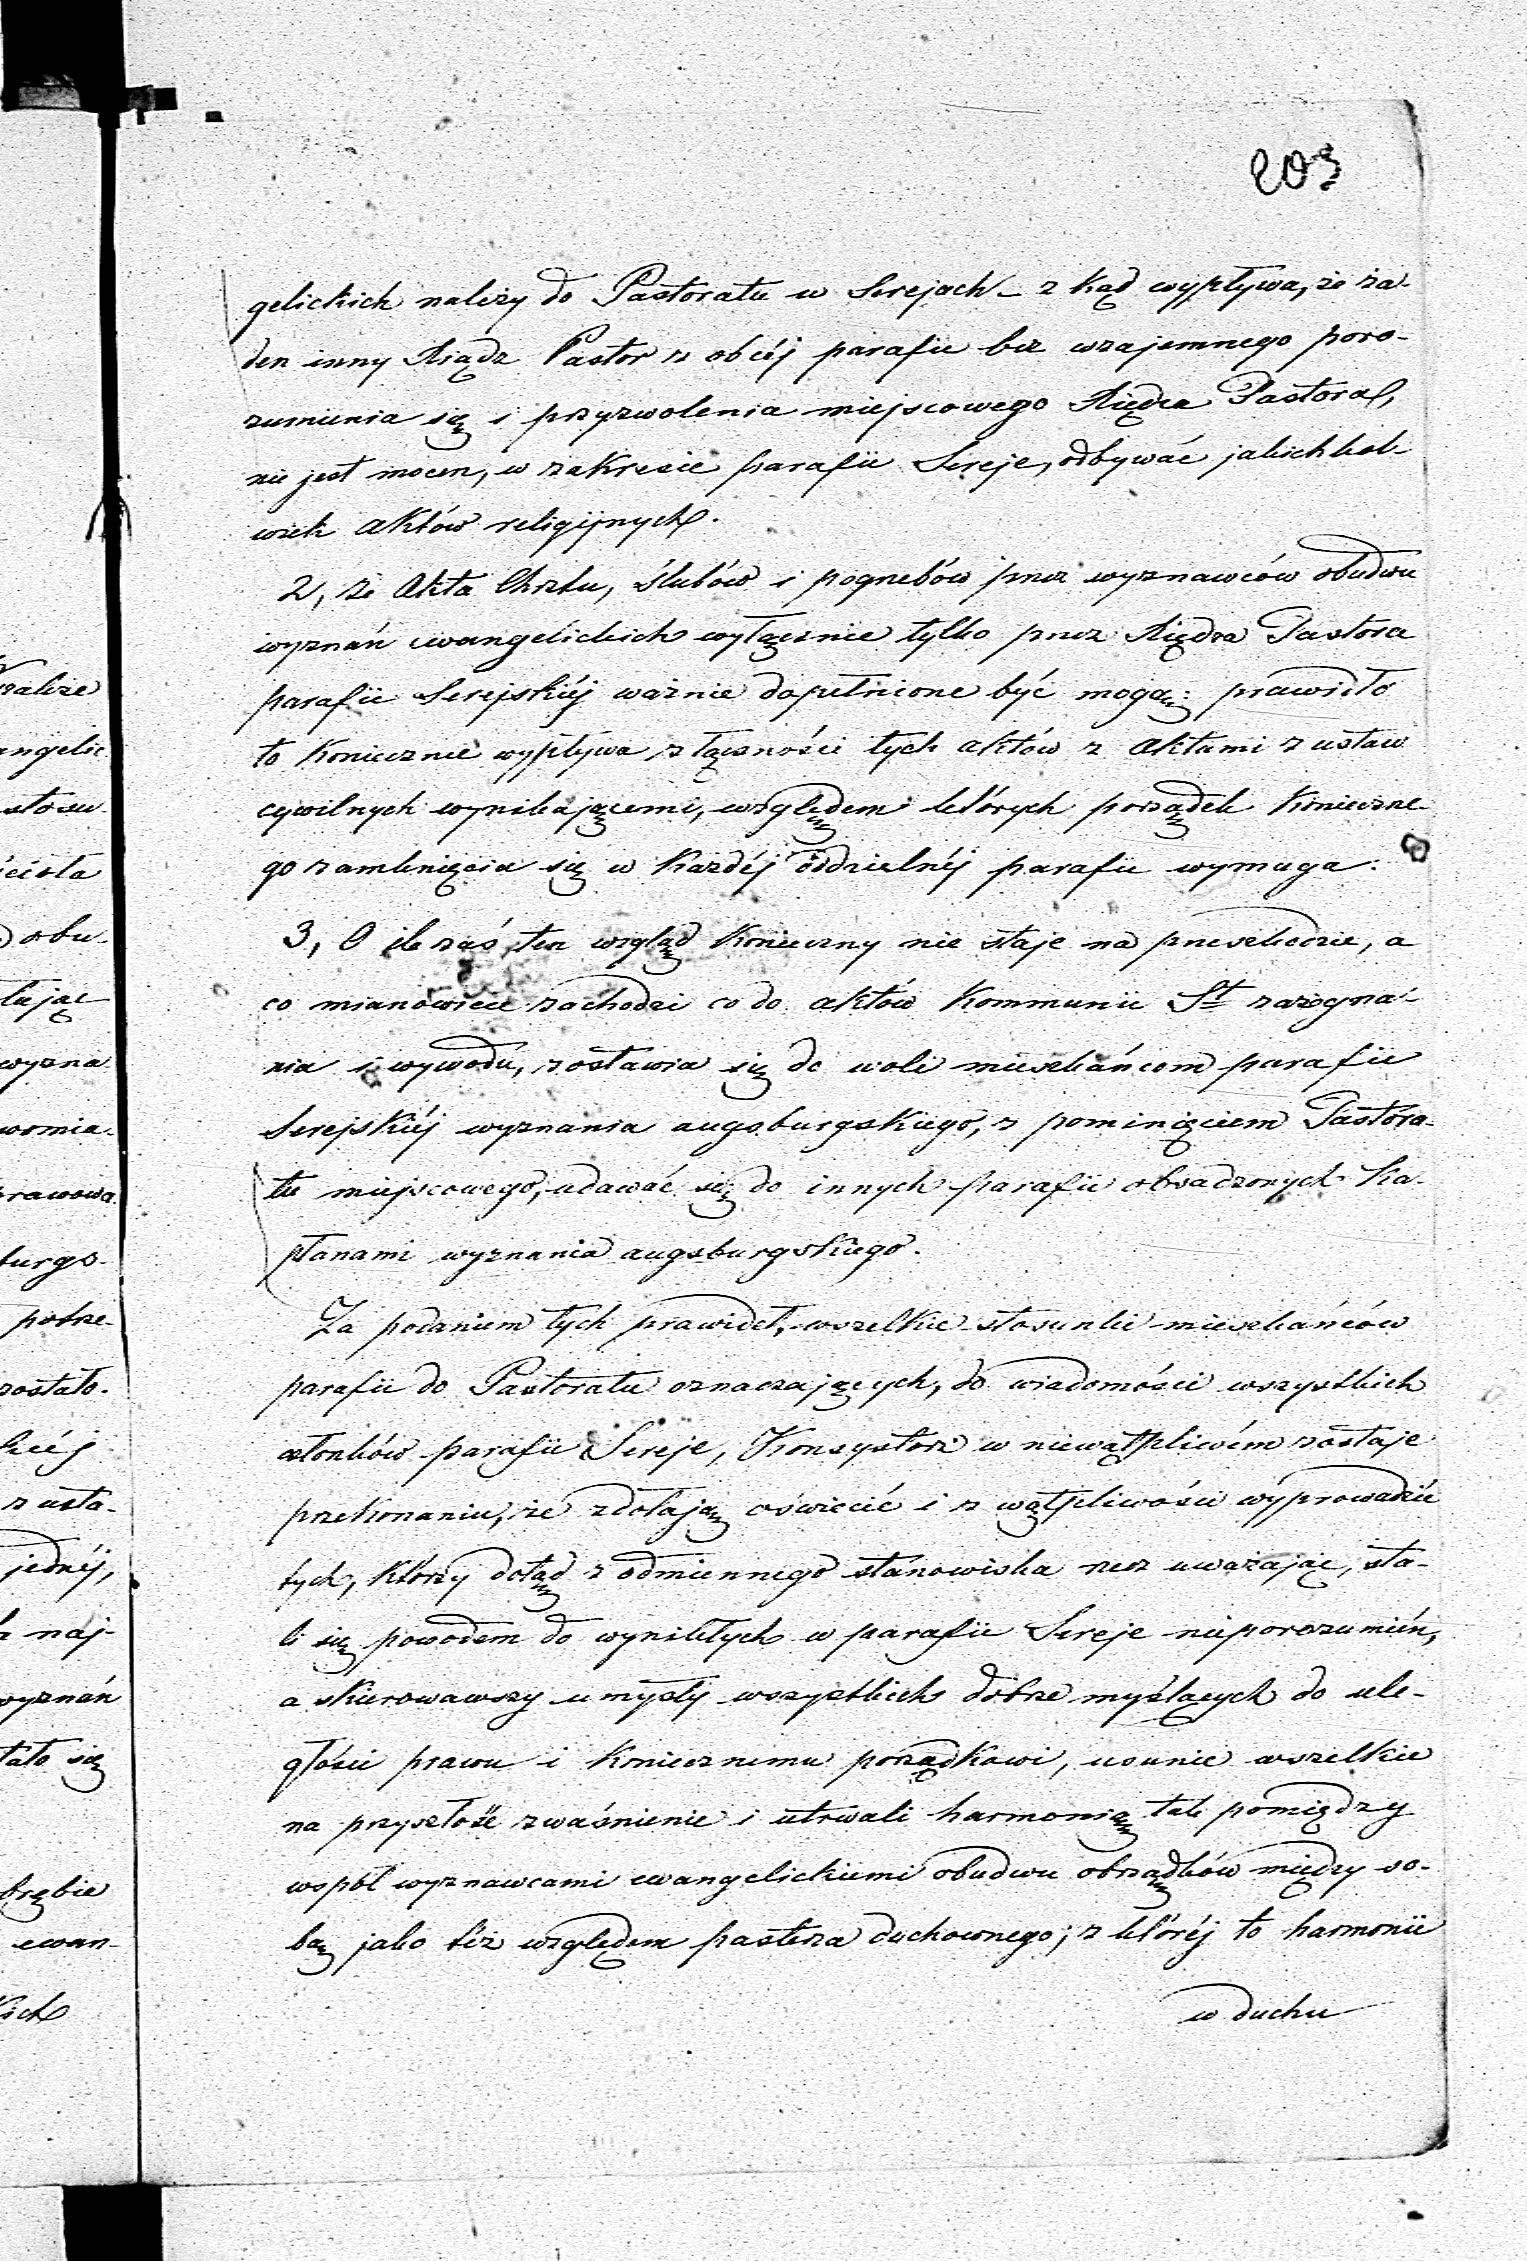 203
gelickich należy do Pastoratu w Serejach – z kąd wypływa, że ża-
den inny Xiądz Pastor z obcéj parafii bez wzajemnego poro-
zumienia się i przyzwolenia miejscowego Xiędza Pastora,
nie jest mocen, w zakresie parafii Sereje, odbywać jakichkol-
wiek aktów religijnych.
2, że Akta Chrztu, Ślubów i pogrzebów przez wyznawców obudwu
wyznań ewangelickich wyłącznie tylko przez Xiędza Pastora
parafii Serejskiéj ważnie dopełnione być mogą; prawidło
to koniecznie wypływa z łączności tych aktów z aktami z ustaw
cywilnych wynikającemi, względem których porządek konieczne-
go zamknięcia się w każdéj oddzielnéj parafii wymaga.
3, O ile zaś ten wzgląd konieczny nie staje na przeszkodzie, a
co mianowicie zachodzi co do aktów Kommunii St zażegna-
nia i wywodu, zostawia się do woli mieszkańcom parafii
Serejskiéj wyznania augsburgskiego, z pominięciem Pastora-
tu miejscowego, udawać się do innych parafii obsadzonych Ka-
płanami wyznania augsburgskiego.
Za podaniem tych prawideł, wszelkie stosunki mieszkańców
parafii do Pastoratu oznaczających, do wiadomości wszystkich
członków parafii Sereje, Konsystorz w niewątpliwém zostaje
przekonaniu, że zdołają oświecić i z wątpliwości wyprowadzić
tych, którzy dotąd z odmiennego stanowiska rzecz uważając, sta-
li się powodem do wynikłych w parafii Sereje nieporozumień,
a skierowawszy umysły wszystkich dobrze myślących do ule-
głości prawu i koniecznemu porządkowi, usunie wszelkie
na przyszłość zwaśnienie i utrwali harmonią tak pomiędzy
współ wyznawcami ewangelickiemi obudwu obrządków między so-
bą jako też względem pasterza duchownego; z któréj to harmonii
w duchu